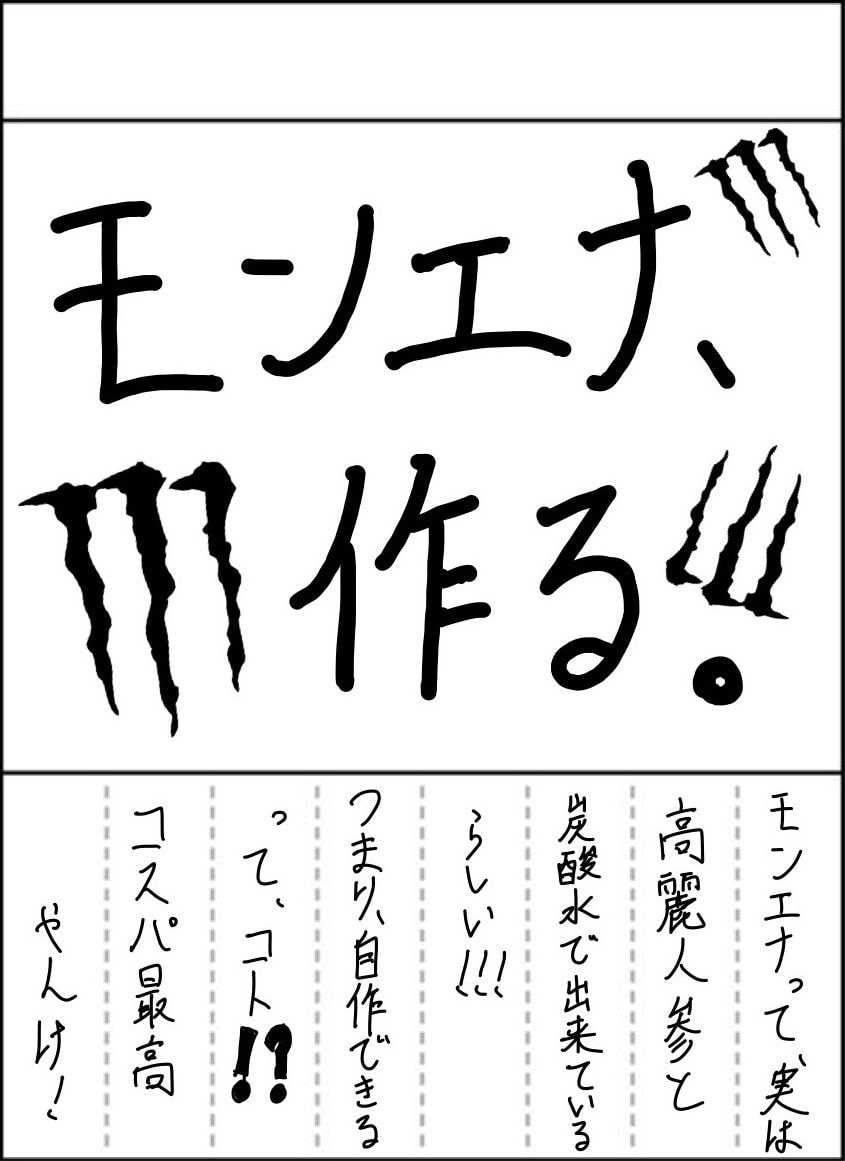 モンエナ、
作る。
モンエナって、実は
高麗人参と
炭酸水で出来ている
らしい!!!
つまり、自作できる
って、コト!?
コスパ最高
やんけ!